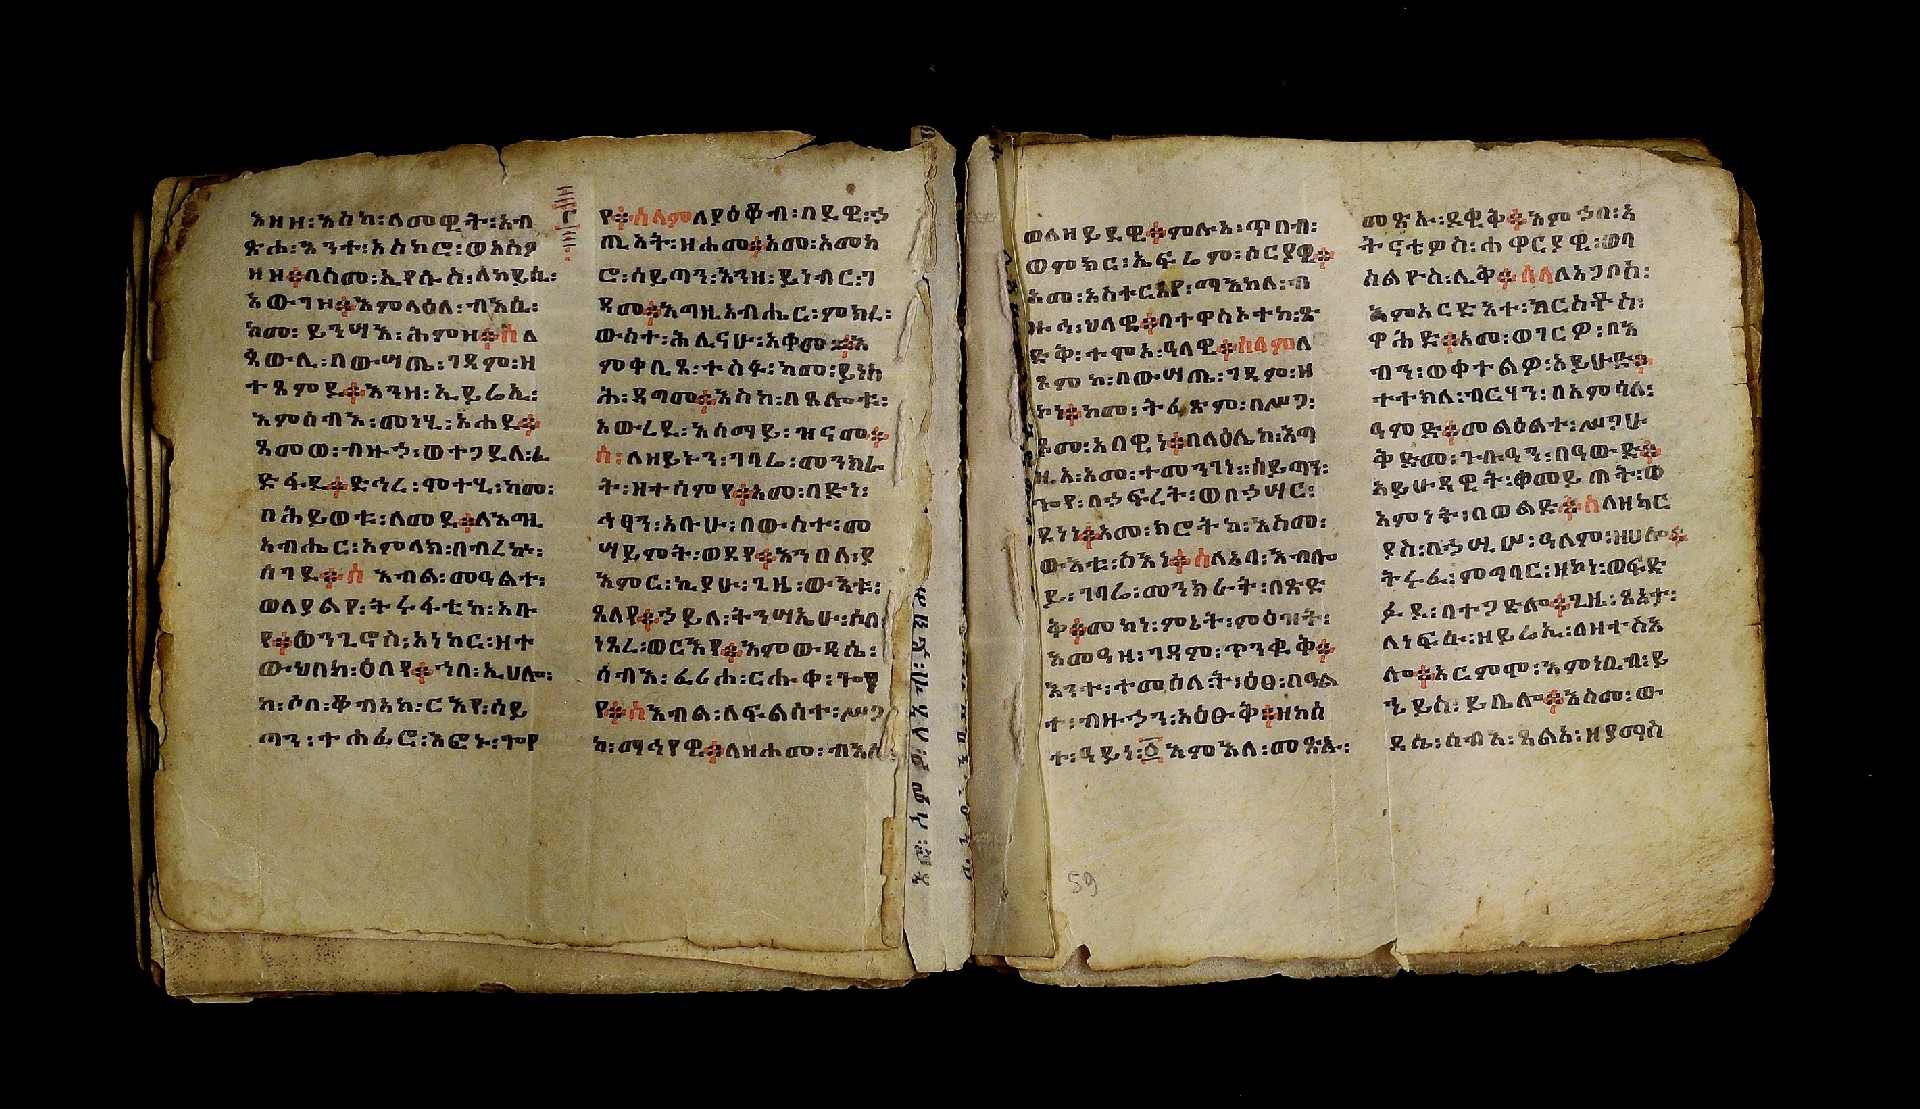 አዘዘ፡እስከ፡ለመዊት፡አብ
ጽሐ፡እንተ፡አስከሮ፡ወአስዖ
ዘዘ፨በስመ፡ኢየሱስ፡ለከይሲ፡
አውገዘ፨እምላዕለ፡ብእሲ፡
ከመ፡ይንሣእ፡ሕምዘ፨ስለ
ጳውሊ፡በውሣጤ፡ገዳም፡ዘ
ተጸምደ፨እንዘ፡ኢይሬኢ፡
እምሰብእ፡መነሂ፡አሐደ፨
ጸመወ፡ብዙኃ፡ወተጋደለ፡ፈ
ድፋደ፨ድኅረ፡ሞተሂ፡ከመ፡
በሕይወቱ፡ለመደ፨ለእግዚ
አብሔር፡አምላክ፡በብረኪ፡
ሰገደ፨ስ እብል፡መዓልተ፡
ወለያልየ፡ትሩፋቲከ፡አቡ
የ፨ወንጊኖስ፡አነክር፡ዘተ
ውህበከ፡ዕበየ፨ኀበ፡ኢሀሎ፡
ከ፡ሶበ፡ቆብአከ፡ርእየ፡ሰይ
ጣን፡ተሐፊሮ፡እፎኑ፡ጐየ
የ፨ሰላምለያዕቆብ፡በደዊ፡ኃ
ጢአት፡ዘሐመ፨አመ፡አመከ
ሮ፡ሰይጣን፡እንዘ፡ይነብር፡ገ
ዳመ፨እግዚአብሔር፡ምክረ፡
ውስተ፡ሕሊናሁ፡አቀመ፨እ
ምቀቢጸ፡ተስፋ፡ከመ፡ይነስ
ሕ፡ዳግመ፨እስከ፡በጸሎቱ፡
አውረደ፡እሰማይ፡ዝናመ፨
ስ፡ለዘይኑን፡ገባሬ፡መንክራ
ት፡ዘተሰምየ፨አመ፡በድነ፡
ሕፃን፡አቡሁ፡በውስተ፡መ
ሣይምት፡ወደየ፨እንበለ፡ያ
እምር፡ኪያሁ፡ጊዜ፡ውእቱ፡
ጸለየ፨ኃይለ፡ትንሣኤሁ፡ሶበ
ነጸረ፡ወርእየ፨እምውዳሴ፡
ሰብእ፡ፈሪሐ፡ርሑቀ፡ጐየ
የ፨ስእብል፡ለፍልሰተ፡ሥጋ
ከ፡ማኅየዊ፨ለዘሐመ፡ብእሲ
ወለዘይደዊ፨ምሉአ፡ጥበብ፡
ወምክር፡ኤፍሬም፡ሶርያዊ፨
አመ፡አስተርአየ፡ማእከለ፡ብ
ዙኅ፡ህላዌ፨በተዋስኦተከ፡ጽ
ድቅ፡ተሞአ፡ዓላዊ፨ሰላምለ
ጾምከ፡በውሣጤ፡ገዳም፡ዘ
ኮነ፨ከመ፡ትፈጽም፡በሥጋ፡
ጾመ፡አበዊነ፨በላዕሌከ፡እግ
ዚአ፡አመ፡ተመንገነ፡፡ሰይጣን፡
ጐየ፡በኃፍረት፡ወበኃሣር፡
ደነነ፨አመ፡ክሮትከ፡እስመ፡
ውእቱ፡ስእነ፨ስለኔባ፡እብሎ
ይ፡ገባሬ፡መንክራት፡በጽድ
ቅ፨መካነ፡ምኔት፡ምዕዝት፡
እመዓዛ፡ገዳም፡ጥንቁቅ፨
እንተ፡ተመሰለት፡ዕፀ፡በዓል
ተ፡ብዙኃን፡አዕፁቅ፨ዘከሰ
ተ፡ዓይነ፡፩እምእለ፡መጽኡ፡
መጽኡ፡ደቂቅ፨እምኃበ፡አ
ትናቴዎስ፡ሐዋርያዊ፡ወባ
ስልዮስ፡ሊቅ፨ሰላለአጋቦስ፡
እምአርድእተ፡ክርስቶስ፡
ዋሕድ፨አመ፡ወገርዎ፡በእ
ብን፡ወቀተልዎ፡አይሁድ፨
ተተክለ፡ብርሃን፡በአምሳለ፡
ዓምድ፨መልዕልተ፡ሥጋሁ
ቅድመ፡ጉቡዓን፡በዓውድ፨
አይሁዳዊት፡ቀመይጠት፡ወ
አምነት፡በወልድ፨ስለዘካር
ያስ፡በኃሢሠ፡ዓለም፡ዘሀሎ፨
ትሩፈ፡ምግባር፡ዘኮነ፡ወፍድ
ፉደ፡በተጋድሎ፨ጊዜ፡ጸአታ፡
ለነፍሱ፡ዘይሬኢ፡ለዘተስእ
ሎ፨አርምሞ፡እምነቢብ፡ይ
ኄይስ፡ይቤሎ፨እስመ፡ው
ዳሴ፡ሰብእ፡ጼልአ፡ዘያማስ
59